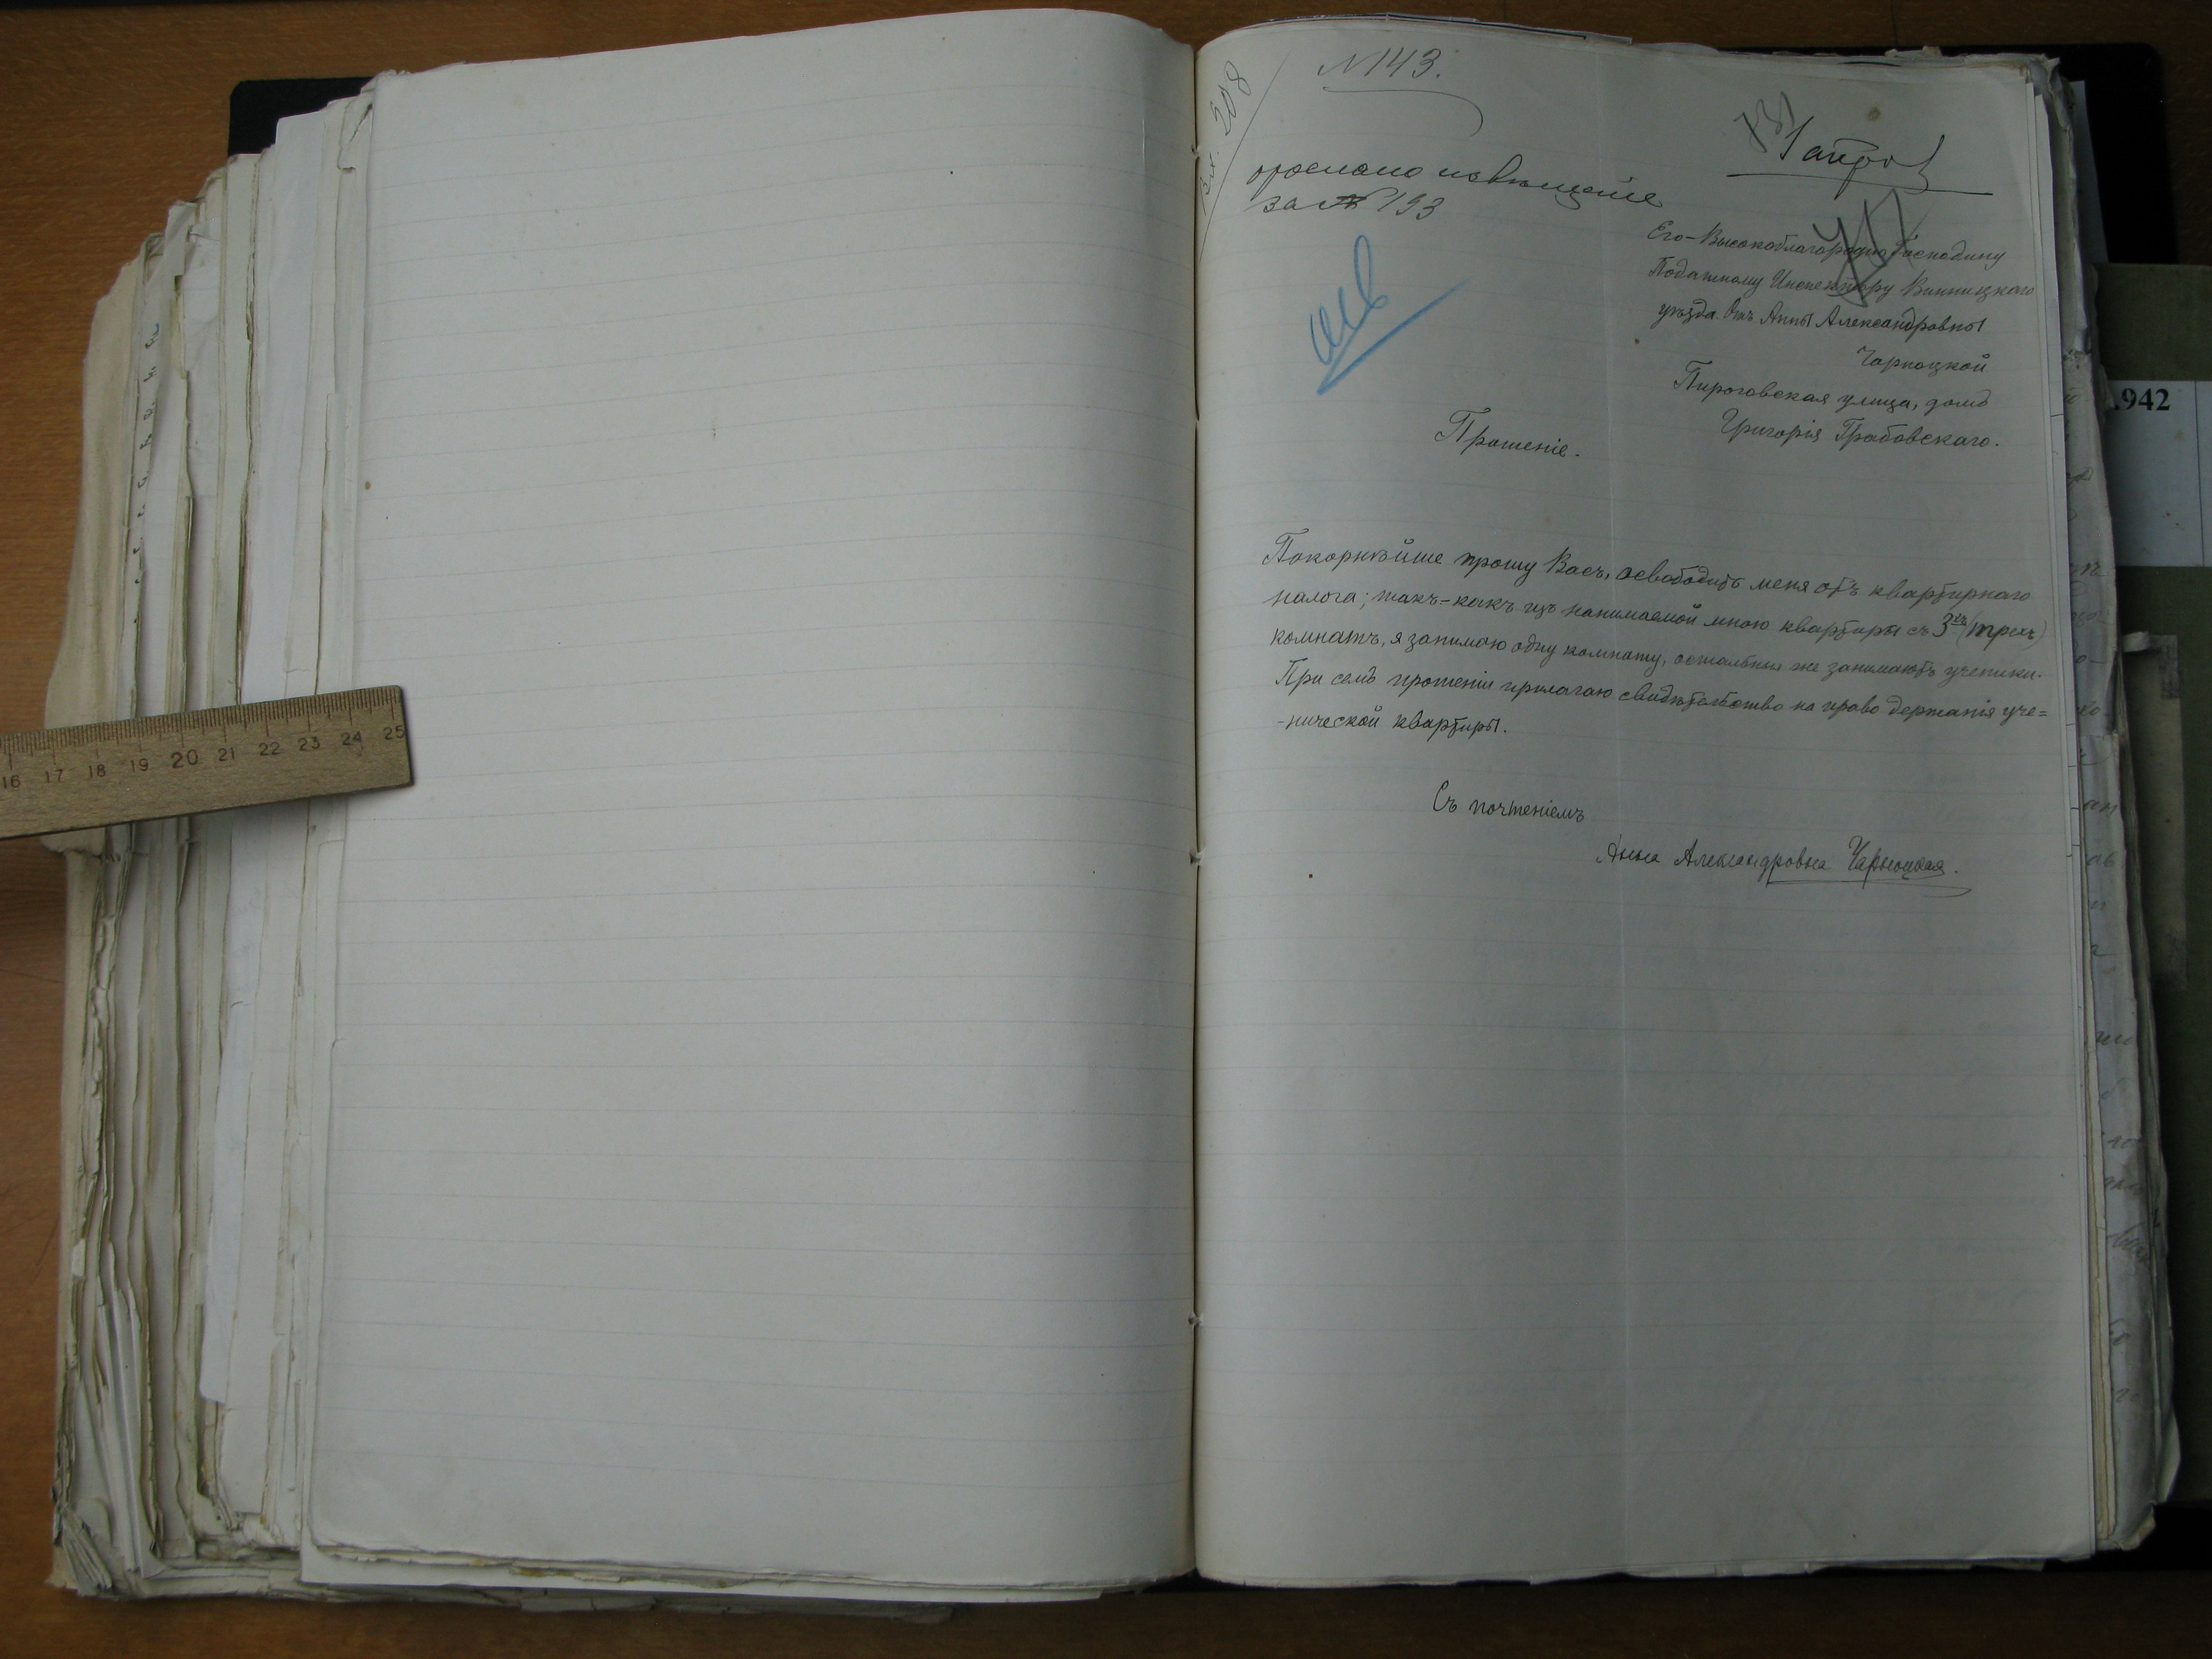 Вх. 208
№ 143.
1 апр
послано извѣщеніе
за № 193
Его-Высокоблагородію Господину
Податному Инспектору Винницкаго
уѣзда. Отъ Анны Александровны
Чарноцкой
Пироговская улица, домъ
Григорія Грабовскаго.
Прошеніе.
Покорнѣйше прошу Васъ, освободить меня отъ квартирнаго
налога; такъ-какъ изъ нанимаемой мною квартиры съ 3хъ (трехъ)
комнатъ, я занимаю одну комнату, остальныя же занимаютъ ученики.
При семъ прошеніи прилагаю свидѣтельство на право держанія уче=
-нической квартиры.
Съ почтеніемъ
Анна Александровна Чарноцкая.
.942
16 17 18 19 20 21 22 23 24 25